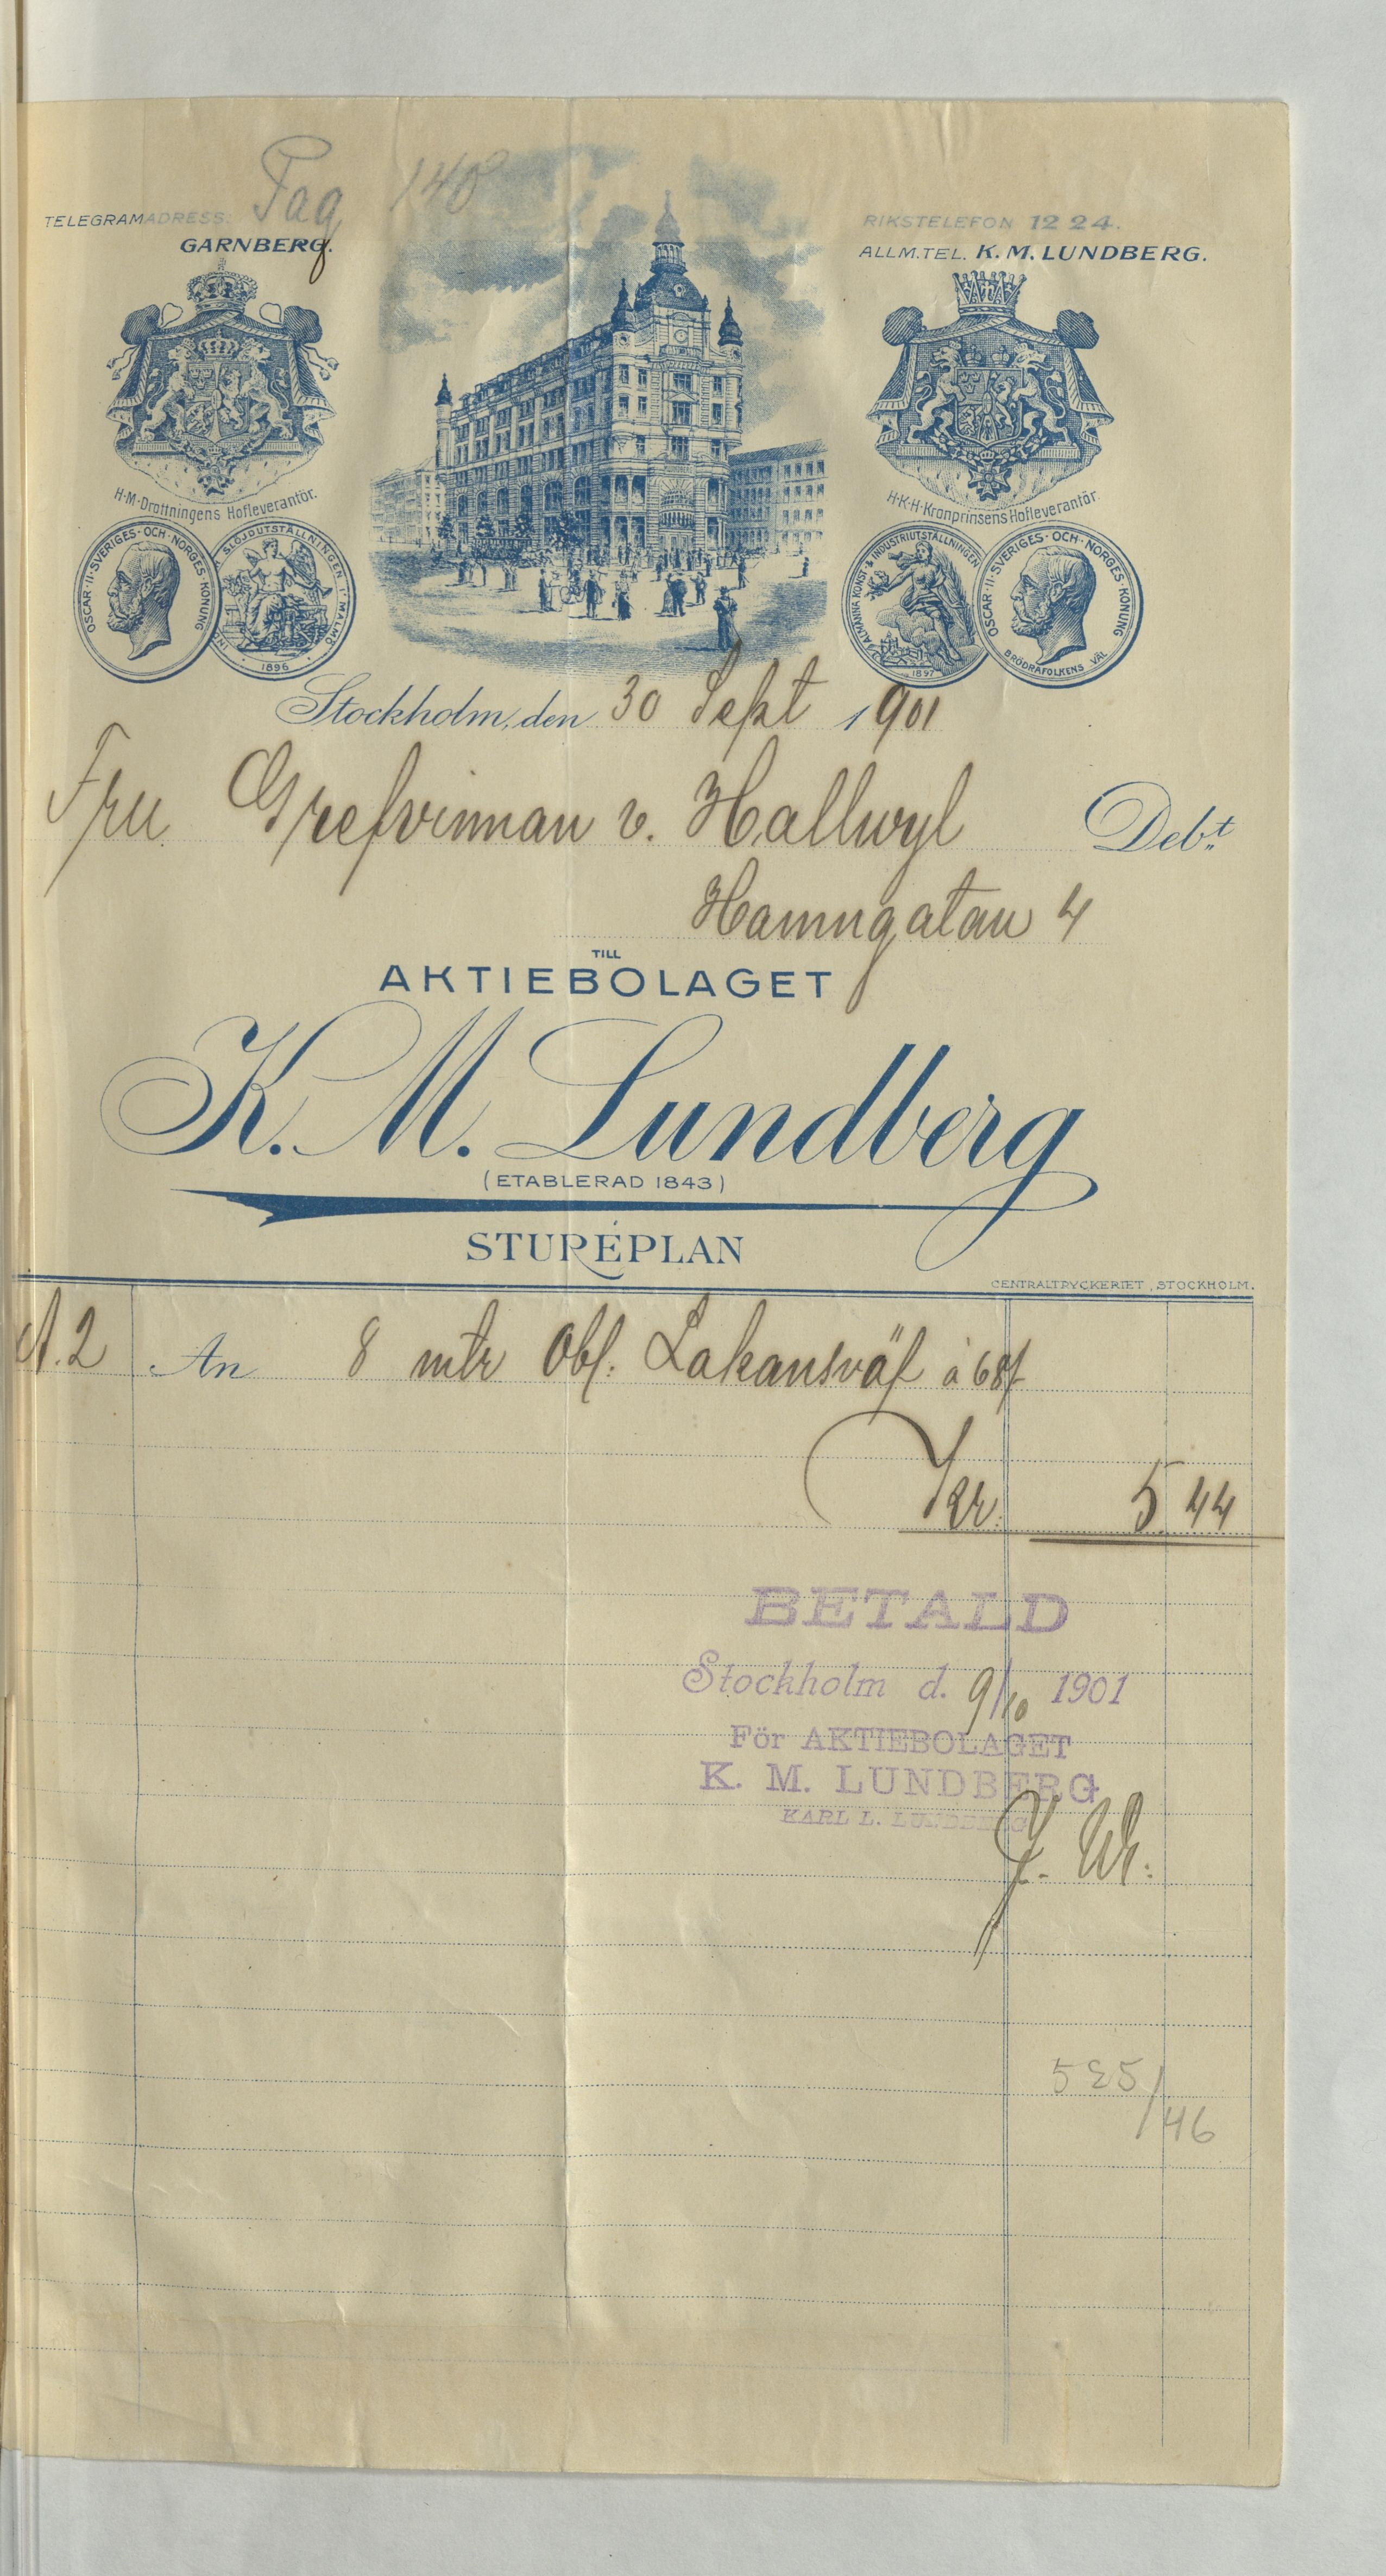 Pag 140
TELEGRAMADRESS:
GARNBERG.
RIKSTELEFON 1224.
ALLM.TEL. K. M. LUNDBERG.
H·M·Drottningens Hofleverantör.
H·K·H·Kronprinsens Hofleverantör.
OSCAR·II·SVERIGES·OCH·NORGES·KONUNG
SLÖJDUTSTÄLLNINGEN I MALMÖ
· 1896 ·
ALLMÄNNA KONST- & INDUSTRIUTSTÄLLNINGEN
1897
OSCAR·II·SVERIGES·OCH·NORGES·KONUNG
BRÖDRAFOLKENS VÄL
Stockholm, den 30 Sept 1901
Fru Grefvinnan v. Hallwyl Debt
Hamngatan 4
TILL
AKTIEBOLAGET
K. M. Lundberg
(ETABLERAD 1843)
STUREPLAN
CENTRALTRYCKERIET, STOCKHOLM.
A.2 An 8 mtr Obl. Lakansväf à 68/-
Kr. 5 44
BETALD
Stockholm d. 9/10 1901
För AKTIEBOLAGET
K. M. LUNDBERG
KARL L. LUNDBERG
535/46